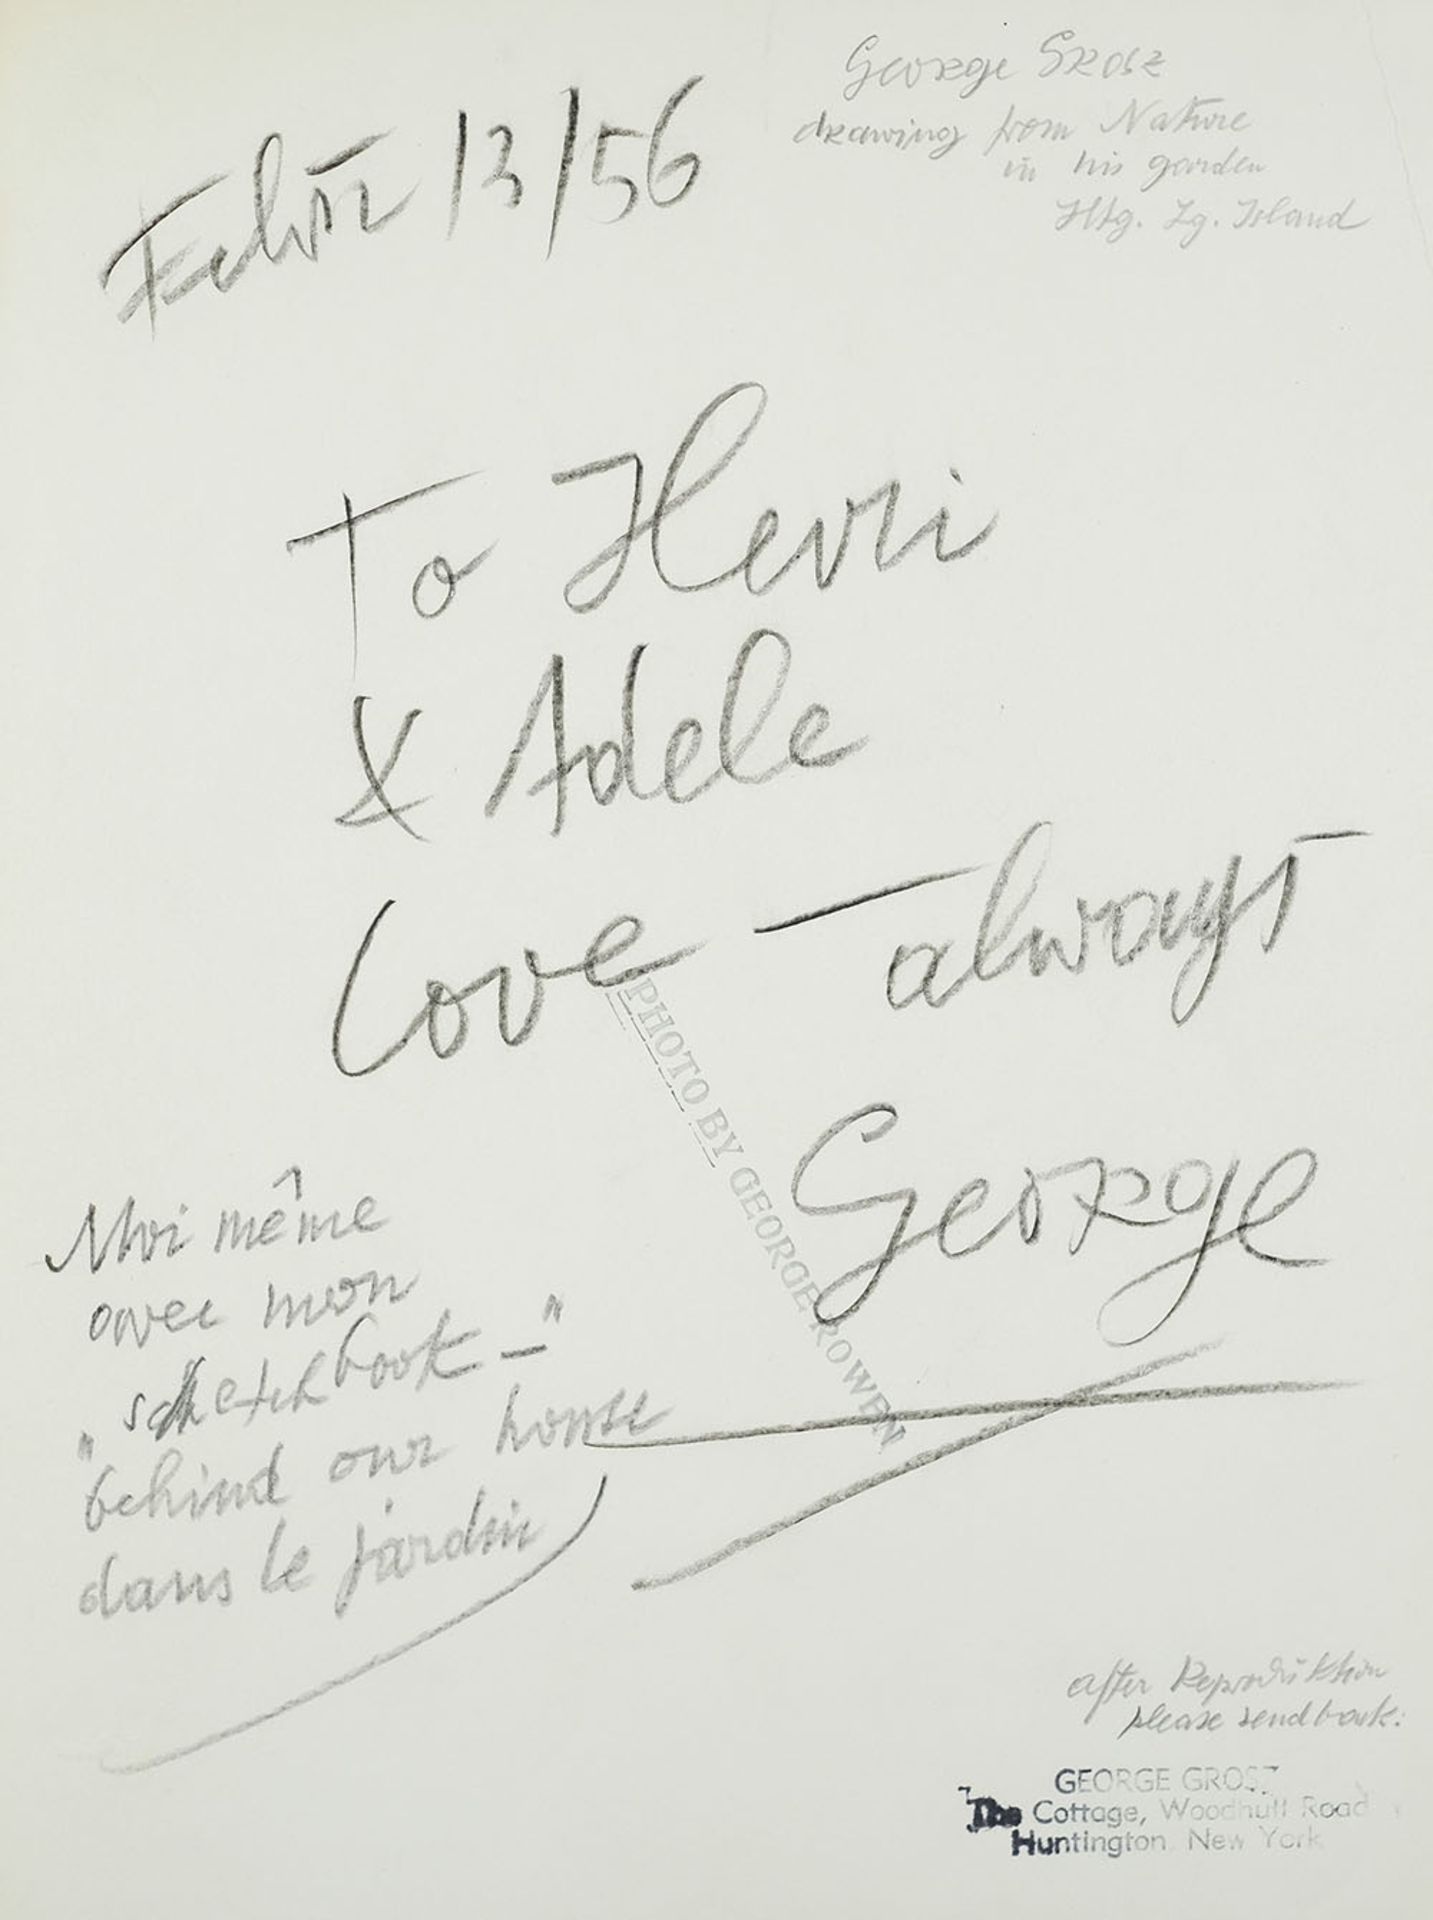 George Grosz
drawing from Nature
in his garden
Htg. Lg. Island
Febr 13/56
To Henri
& Adele
Love — always
George
PHOTO BY GEORGE ROWEN
Moi même
avec mon
"sketchbook –"
behind our house
dans le jardin
after Reproduktion
please send back:
GEORGE GROSZ
The Cottage, Woodhull Road
Huntington, New York